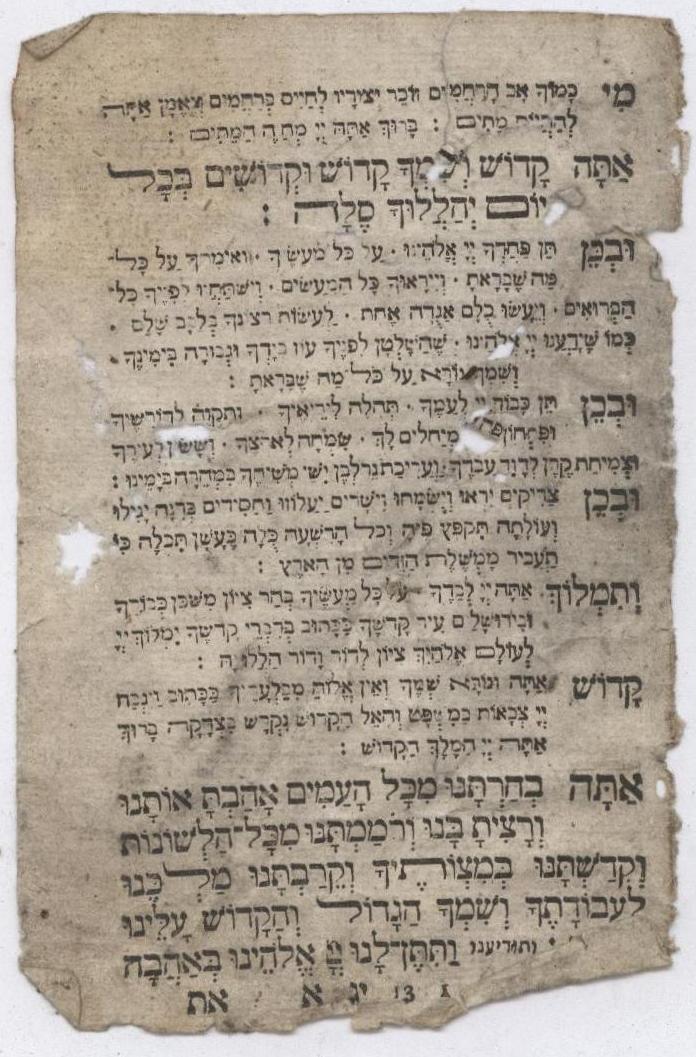 מִי כָמוֹךָ אַב הָרַחֲמִים זוֹכֵר יְצוּרָיו לְחַיִּים בְּרַחֲמִים וְנֶאֱמָן אַתָּה
לְהַחֲיוֹת מֵתִים : בָּרוּךְ אַתָּה יְיָ מְחַיֵּה הַמֵּתִים :
אַתָּה קָדוֹשׁ וְשִׁמְךָ קָדוֹשׁ וּקְדוֹשִׁים בְּכָל
יוֹם יְהַלְלוּךָ סֶלָה :
וּבְכֵן תֵּן פַּחְדְּךָ יְיָ אֱלֹהֵינוּ · עַל כָּל מַעֲשֶׂיךָ · וְאֵימָתְךָ עַל כָּל־
מַה שֶּׁבָּרָאתָ · וְיִירָאוּךָ כָּל הַמַּעֲשִׂים · וְיִשְׁתַּחֲווּ לְפָנֶיךָ כָּל־
הַבְּרוּאִים · וְיֵעָשׂוּ כֻלָּם אֲגֻדָּה אֶחָת · לַעֲשׂוֹת רְצוֹנְךָ בְּלֵבָב שָׁלֵם ·
כְּמוֹ שֶׁיָּדַעְנוּ יְיָ אֱלֹהֵינוּ · שֶׁהַשָּׁלְטָן לְפָנֶיךָ עוֹז בְּיָדְךָ וּגְבוּרָה בִּימִינֶךָ ·
וְשִׁמְךָ נוֹרָא עַל כָּל־מַה שֶּׁבָּרָאתָ :
וּבְכֵן תֵּן כָּבוֹד יְיָ לְעַמֶּךָ · תְּהִלָּה לִירֵאֶיךָ · וְתִקְוָה לְדוֹרְשֶׁיךָ
וּפִתְחוֹן פֶּה מְיַחֲלִים לָךְ · שִׂמְחָה לְאַרְצֶךָ · וְשָׂשׂוֹן לְעִירֶךָ
וּצְמִיחַת קֶרֶן לְדָוִד עַבְדֶּךָ וַעֲרִיכַת נֵר לְבֶן יִשַׁי מְשִׁיחֶךָ בִּמְהֵרָה בְיָמֵינוּ :
וּבְכֵן צַדִּיקִים יִרְאוּ וְיִשְׂמָחוּ וִישָׁרִים יַעֲלוֹזוּ וַחֲסִידִים בְּרִנָּה יָגִילוּ
וְעוֹלָתָה תִּקְפָּץ פִּיהָ וְכָל הָרִשְׁעָה כֻּלָּהּ כֶּעָשָׁן תִּכְלֶה כִּי
תַעֲבִיר מֶמְשֶׁלֶת הַזָּדִים מִן הָאָרֶץ :
וְתִמְלוֹךְ אַתָּה יְיָ לְבַדֶּךָ עַל כָּל מַעֲשֶׂיךָ בְּהַר צִיּוֹן מִשְׁכַּן כְּבוֹדֶךָ
וּבִירוּשָׁלַיִם עִיר קָדְשֶׁךָ כַּכָּתוּב בְּדִבְרֵי קָדְשֶׁךָ יִמְלוֹךְ יְיָ
לְעוֹלָם אֱלֹהַיִךְ צִיּוֹן לְדוֹר וָדוֹר הַלְלוּיָהּ :
קָדוֹשׁ אַתָּה וְנוֹרָא שְׁמֶךָ וְאֵין אֱלוֹהַּ מִבַּלְעָדֶיךָ כַּכָּתוּב וַיִּגְבַּהּ
יְיָ צְבָאוֹת בַּמִּשְׁפָּט וְהָאֵל הַקָּדוֹשׁ נִקְדַּשׁ בִּצְדָקָה בָּרוּךְ
אַתָּה יְיָ הַמֶּלֶךְ הַקָּדוֹשׁ :
אַתָּה בְחַרְתָּנוּ מִכָּל הָעַמִּים אָהַבְתָּ אוֹתָנוּ
וְרָצִיתָ בָּנוּ וְרֹמַמְתָּנוּ מִכָּל־הַלְּשׁוֹנוֹת
וְקִדַּשְׁתָּנוּ בְּמִצְוֹתֶיךָ וְקֵרַבְתָּנוּ מַלְכֵּנוּ
לַעֲבוֹדָתֶךָ וְשִׁמְךָ הַגָּדוֹל וְהַקָּדוֹשׁ עָלֵינוּ
ותודיענו וַתִּתֶּן־לָנוּ יְיָ אֱלֹהֵינוּ בְּאַהֲבָה
13 יג א את